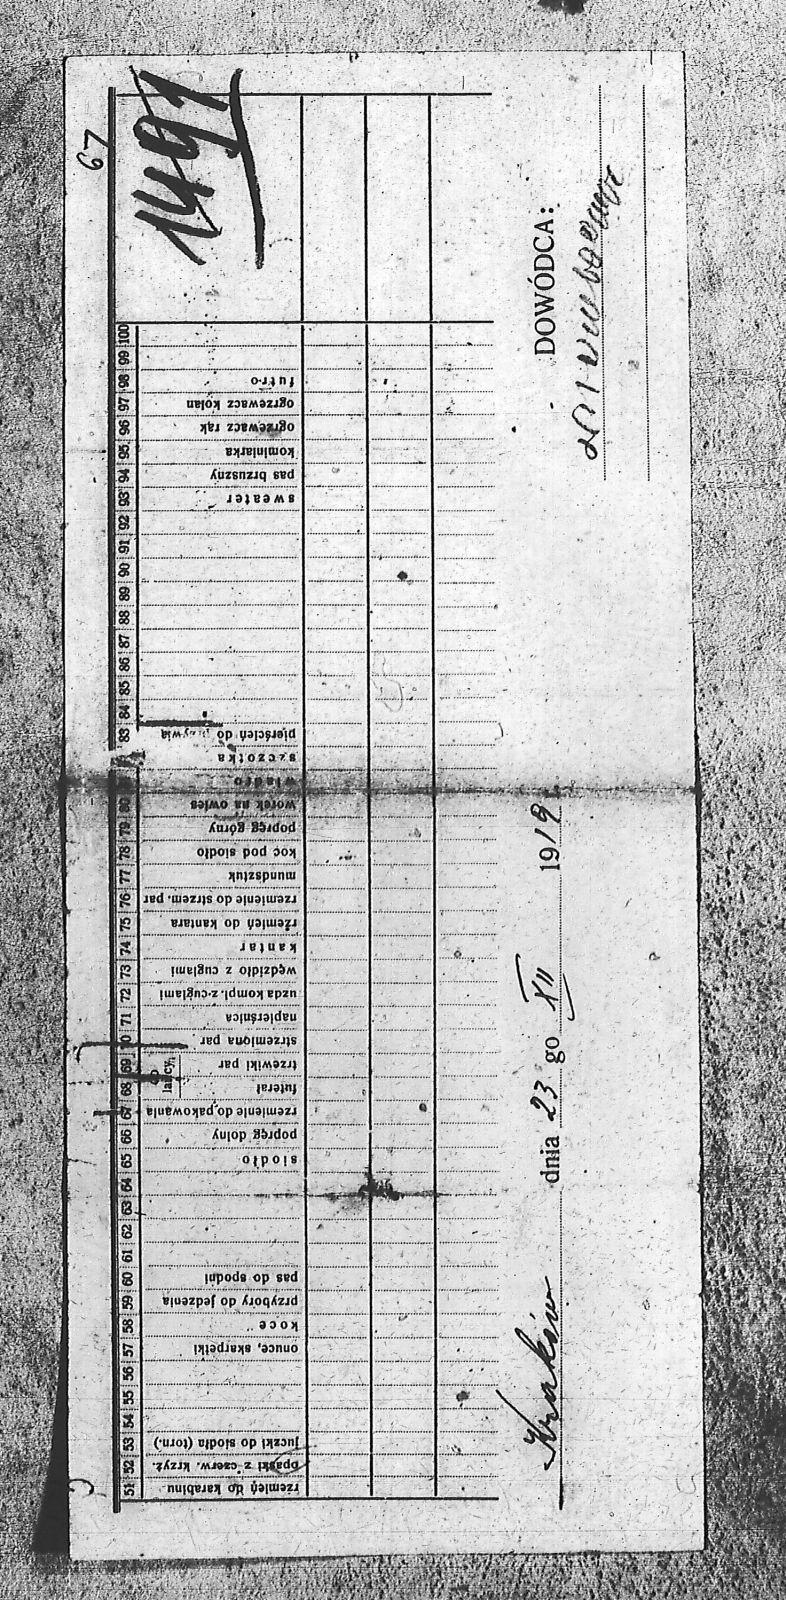 67
1491
51 rzemień do karabinu
52 opaski z czerw. krzyż.
53 juczki do siodła (torn.)
54
55
56
57 onuce, skarpetki
58 koce
59 przybory do jedzenia
60 pas do spodni
61
62
63
64
65 siodło
66 popręg dolny
67 rzemienie do pakowania
68 futerał
69 trzewiki par
do lancy,
70 strzemiona par
71 napierśnica
72 uzda kompl. z cuglami
73 wędzidło z cuglami
74 kantar
75 rzemień do kantara
76 rzemienie do strzem. par
77 mundsztuk
78 koc pod siodło
79 popręg górny
80 worek na owies
wiadro
szczotka
83 pierścień do przywią
84
85
86
87
88
89
90
91
92
93 sweater
94 pas brzuszny
95 kominiarka
96 ogrzewacz rąk
97 ogrzewacz kolan
98 futro
99
100
Kraków dnia 23 go XII 1919
DOWÓDCA: